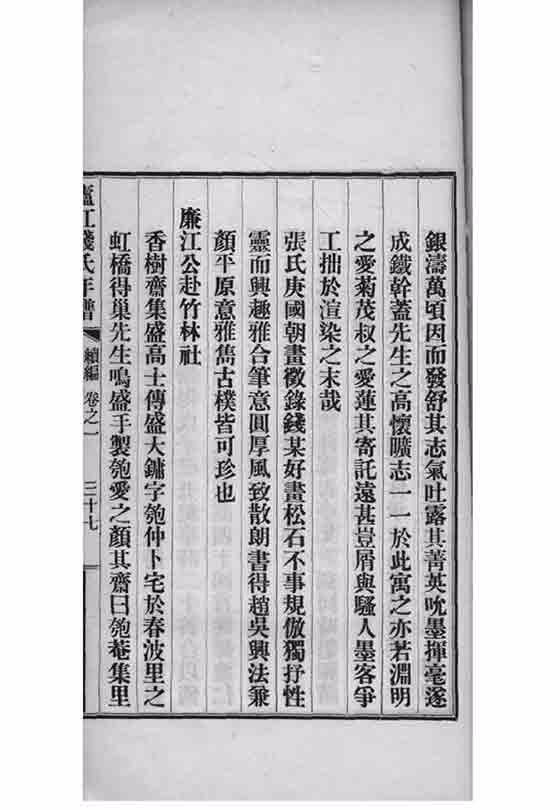 銀濤萬頃因而發舒其志氣吐露其菁英吮墨揮毫遂
成鐵幹蓋先生之高懷曠志一一於此寓之亦若淵明
之愛菊茂叔之愛蓮其寄託遠甚豈屑與騷人墨客爭
工拙於渲染之末哉
張氏庚國朝畫徵錄錢某好畫松石不事規倣獨抒性
靈而興趣雅合筆意圓厚風致散朗書得趙吳興法兼
顏平原意雅雋古樸皆可珍也
廉江公赴竹林社
香樹齋集盛高士傳盛大鏞字匏仲卜宅於春波里之
虹橋得巢先生鳴盛手製匏愛之顏其齋曰匏菴集里
廬江錢氏年譜 續編 卷之一 三十七